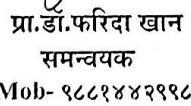 प्रा.डॉ.फरिदा खान
समन्वयक
Mob- ९८८१४४२९९८